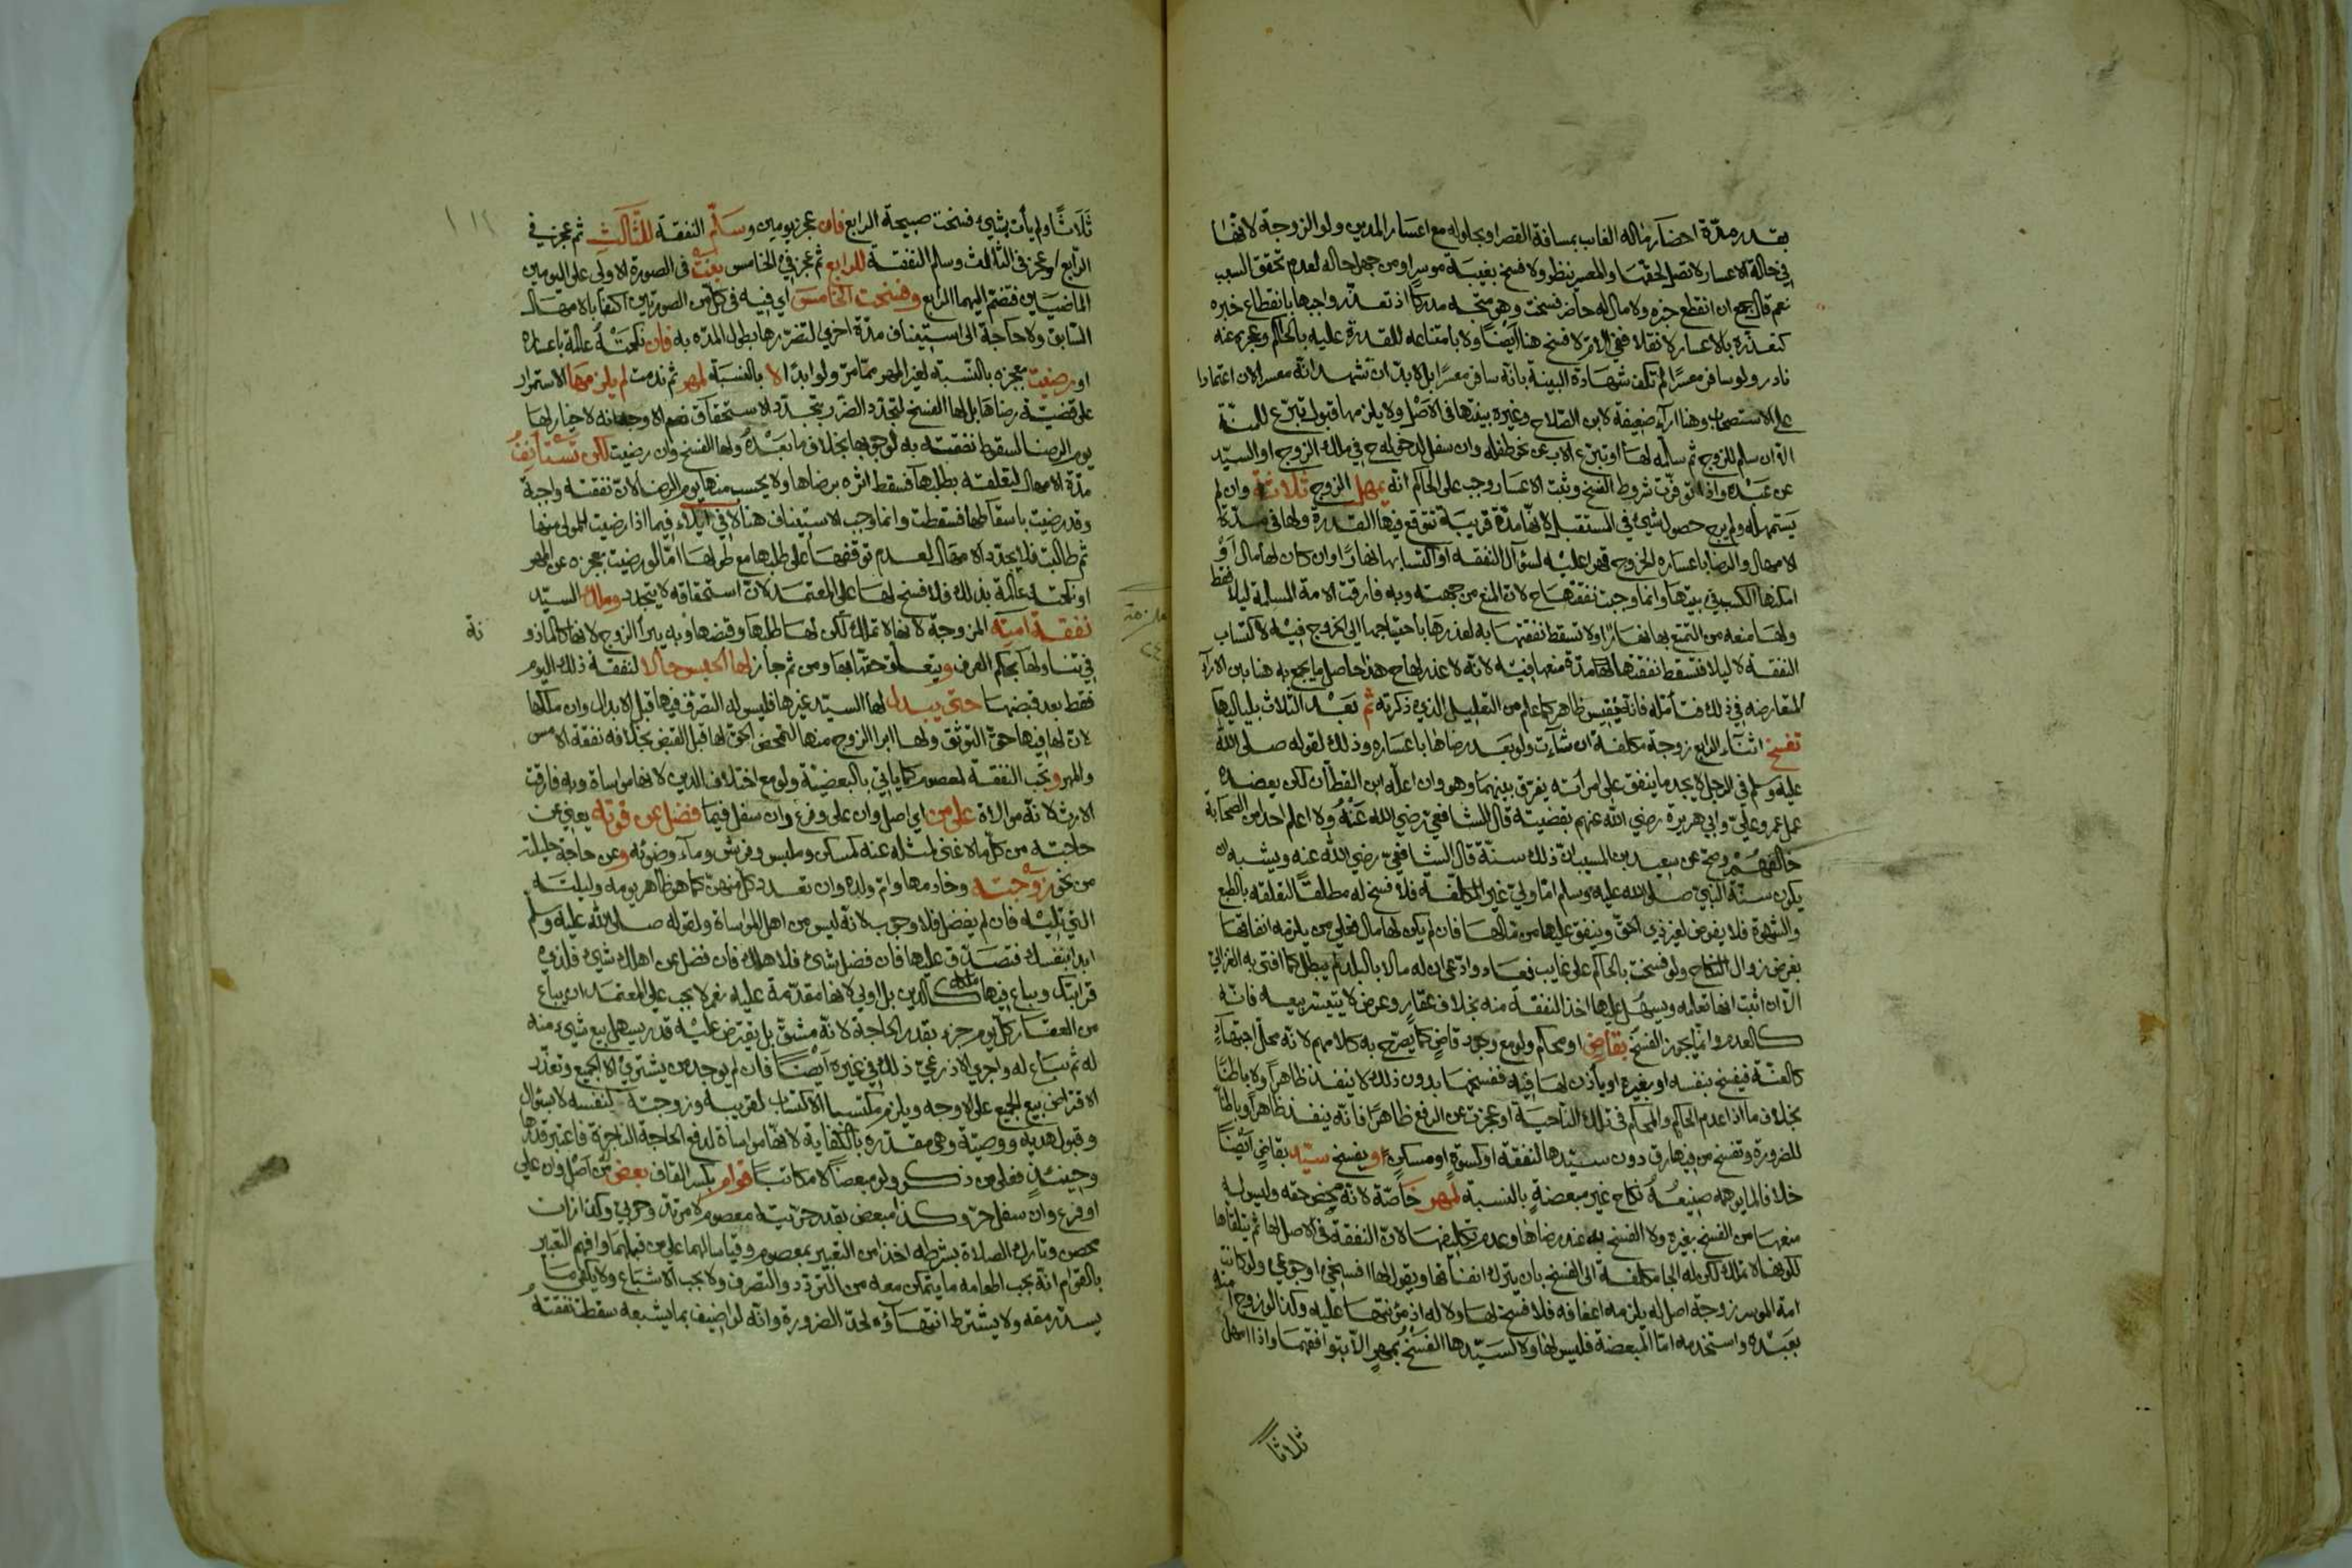 بقدر مدّة احضار ماله الغايب بمسافة القصر او بحلوله مع اعسار المدين ولو الزوجة لانها
في حالة الاعسار لا تصل لحقها والمعسر ينظر ولا فسخ بغيبة موسرا ومن جهل حاله لعدم تحقق السبب
نعم قال جمع ان انقطع خبره ولا مال له حاضر فسخت وهو متجه مدركا اذ تعذر واجبها بانقطاع خبره
كتعذره بالاعسار لا نقلا ففي الام لا فسخ هنا ايضا ولا بامتناعه للقدرة عليه بالحاكم وعجزه عنه
نادر ولو سافر معسرا لم تكف شهادة البينة بانه سافر معسرا بل لا بد ان تشهد انه معسر الان اعتمادا
على الاستصحاب وهنا اراء ضعيفة لابن الصلاح وغيره بينتها في الاصل ولا يلزمها قبول تبرع للمنة
الا ان سلم للزوج ثم سلمه لها او تبرع الاب عن نحو طفله وان سفل لدخوله ح في ملك الزوج او السيد
عن عبده واذا توفرت شروط الفسخ وثبت الاعسار وجب على الحاكم انه يمهل الزوج ثلاثة وان لم
يستمهله ولم يرج حصول شيء في المستقبل لانها مدة قريبة تتوقع فيها القدرة ولها في مدة
الامهال والرضا باعساره الخروج قهرا عليه لسؤال النفقه او اكتسابها نهارا وان كان لها مال او
امكنها الكسب في بيتها وانما وجبت نفقتها ح لان المنع من جهته وبه فارقت الامة المسلمة ليلا فقط
ولها منعه من التمتع بها نهارا ولا تسقط نفقتها به لعذرها باحتياجها الى الخروج فيه لاكتساب
النفقه لا ليلا فتسقط نفقتها لها مدة منعها فيه لانه لا عذر لها ح هذا حاصل ما يجمع به هنا بين الاراء
المتعارضه في ذلك فتامله فانه نفيس ظاهر كما علم من التعليل الذي ذكرته ثم بعد الثلاث بلياليها
تفسخ اثناء الرابع زوجة مكلفة ان شاءت ولو بعد رضاها باعساره وذلك لقوله صلى الله
عليه وسلم في الرجل لا يجد ما ينفق على امراته يفرق بينهما وهو وان اعله ابن القطان لكن يعضده
عمل عمر وعلي وابي هريرة رضي الله عنهم بقضيته قال الشافعي رضي الله عنه ولا اعلم احدا من الصحابة
خالفهم وصح عن سعيد بن المسيب ان ذلك سنة قال الشافعي رضي الله عنه ويشبه ان
يكون سنة النبي صلى الله عليه وسلم اما ولي غير المكلفة فلا فسخ له مطلقا لتعلقه بالطبع
والشهوة فلا يفوض لغير ذي الحق وينفق عليها من مالها فان لم يكن لها مال فعلى من يلزمه انفاقها
بفرض زوال النكاح ولو فسخت بالحاكم على غايب فعاد وادعى ان له مالا بالبلد لم يبطل كما افتى به الغزالي
الا ان اثبت انها تعلمه ويسهل عليها اخذ النفقة منه بخلاف عقار وعرض لا يتيسر بيعه فانه
كالعدم وانما يجوز الفسخ بقاض او محكم ولو مع وجود قاض كما يصرح به كلامهم لانه محل اجتهاد
كالعنة فيفسخ بنفسه او بغيره او ياذن لها فيه ففسخها بدون ذلك لا ينفذ ظاهرا ولا باطنا
بخلاف ما اذا عدم الحاكم والمحكم في تلك الناحية او عجزت عن الرفع ظاهرا فانه ينفذ ظاهرا وباطنا
للضرورة وتفسخ من فيها رق دون سيدها لنفقة او كسوة او مسكن او يفسخ سيد بقاض ايضا
خلافا لما يوهمه صنيعه نكاح غير مبعضة بالنسبة لمهر خاصة لانه محض حقه وليس له
منعها من الفسخ بغيره ولا الفسخ به عند رضاها وعدم تكليفها لان النفقة في الاصل لها ثم يتلقاها
لكونها لا تملك لكن له الجا مكلفة الى الفسخ بان يترك انفاقها ويقول لها افسخي او جوعي ولو كانت
امة الموسر زوجة اصل له يلزمه اعفافه فلا فسخ لها ولا له اذ مؤنتها عليه وكذا لو زوج امته
بعبده واستخدمه اما المبعضة فليس لها ولا لسيدها الفسخ بمهر الا بتوافقهما واذا امهل
ثلاثا
ثلاثا ولم يات بشيء فسخت صبيحة الرابع فان عجز يومين وسلم النفقة للثالث ثم عجز في
الرابع او عجز في الثالث وسلم النفقة للرابع ثم عجز في الخامس بنت في الصورة الاولى على اليومين
الماضيين فتضم اليهما الرابع وفسخت الخامس اي فيه في كل من الصورتين اكتفا بالامهال
السابق ولا حاجة الى استيناف مدة اخرى لتضررها بطول المده به فان نكحته عالمة باعساره
او رضيت بعجزه بالنسبة لغير المهر مما مر ولو ابدا لا بالنسبة لمهر ثم ندمت لم يلزمها الاستمرار
على قضية رضاها بل لها الفسخ لتجدد الضرر بتجدد الاستحقاق نعم الاوجه انه لا خيار لها
يوم الرضا لسقوط نفقته به لوجوبها بخلاف ما بعده ولها الفسخ وان رضيت لكن تستانف
مدة الامهال لتعلقه بطلبها فسقط اثره برضاها ولا يحسب منها يوم الرضا لان نفقته واجبة
وقد رضيت باسقاطها فسقطت وانما وجب الاستيناف هنا لا في ايلاء فيما اذا رضيت المولى منها
ثم طالبت فلا يجدد الامهال لعدم توقفها على طلبها مع طولها اما لو رضيت بعجزه عن المهر
او نكحته عالمة بذلك فلا فسخ لها على المعتمد لان استحقاقه لا يتجدد وملك السيد
نفقة امته المزوجة لانها لا تملك لكن لها طلبها وقبضها وبه يبرأ الزوج لانها كالماذونة
في تناولها بحكم العرف ويتعلق حقها بها ومن ثم جاز لها الحبس حالا لنفقة ذلك اليوم
فقط بعد قبضها حتى يبدل لها السيد غيرها فليس له التصرف فيها قبل الابدال وان ملكها
لان لها فيها حق التوثق ولها ابرا الزوج منها لتمحض الحق لها قبل القبض بخلافه نفقة الامس
والمهر وتجب النفقة لمعصوم كما ياتي بالبعضية ولو مع اختلاف الدين لانها مواساة وبه فارقت
الارث لانه موالاة على من اي اصل وان على وفرع وان سفل فيما فضل عن قوته يعني عن
حاجته من كل ما لا غنى لمثله عنه كمسكن وملبس وفرش وماء وضوئه وعن حاجة حليلته
من نحو زوجته وخادمها وام ولده وان تعدد كل منهن كما هو ظاهر يومه وليلته
التي تليه فان لم يفضل فلا وجوب لانه ليس من اهل المواساة ولقوله صلى الله عليه وسلم
ابدا بنفسك فتصدق عليها فان فضل شيء فلاهلك فان فضل عن اهلك شيء فلذي
قرابتك ويباع فيها ملكه كالدين بل اولى لانها مقدمة عليه نعم لا يجب على المعتمد ان يباع
من العقار كل يوم جزء بقدر الحاجة لانه مشق بل يقترض عليه قدر يسهل بيع شيء منه
له ثم يباع له واجري الاذرعي ذلك في غيره ايضا فان لم يوجد من يشتري الا الجميع وتعذر
الاقتراض بيع الجميع على الاوجه ويلزم مكتسبا الاكتساب لقريبه وزوجته كنفسه لا سؤال
وقبول هدية ووصية وهي مقدره بالكفاية لانها مواساة لدفع الحاجة الناجزة فاعتبر قدرها
وحينئذ فعلى من ذكر ولو مبعضا لا مكاتبا قوام بكسر القاف بعض من اصل وان على
او فرع وان سفل حر وكذا مبعض بقدر حريته معصوم لا مرتد وحربي وكذا زان
محصن وتارك الصلاة بشرطه اخذا من التعبير بمعصوم وقياسا لهما على من قبلهما وافهم التعبير
بالقوام انه يجب اطعامه ما يتمكن معه من التردد والتصرف ولا يجب الاشباع ولا يكفي ما
يسد رمقه ولا يشترط انتهاؤه لحد الضرورة وانه لو اضيف بما يشبعه سقطت نفقته